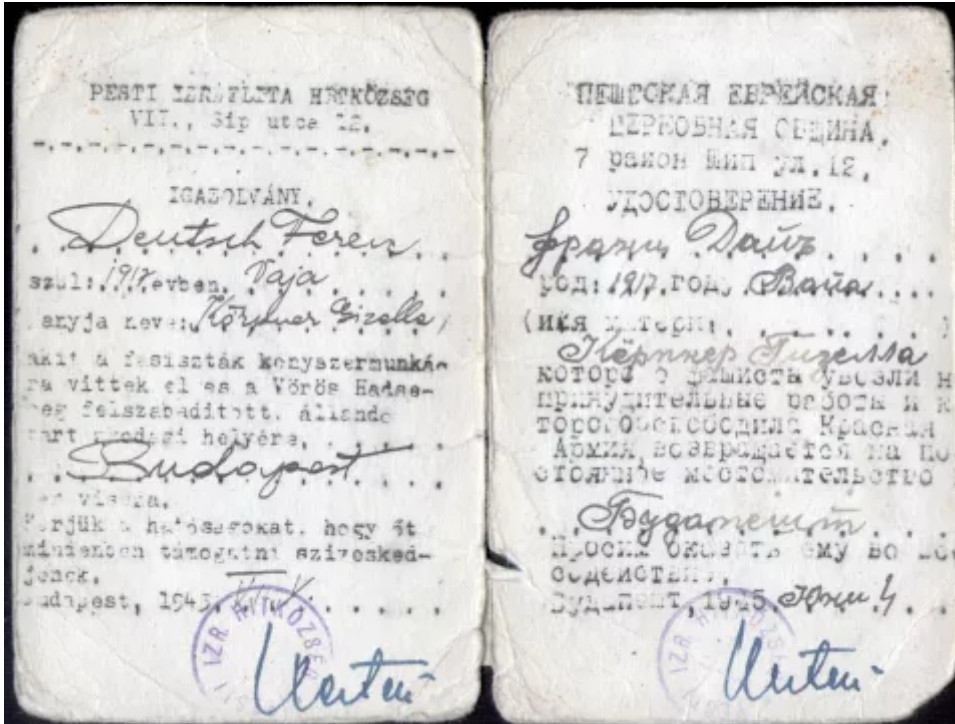 PESTI IZRAELITA HITKÖZSÉG
VII., Síp utca 12.
IGAZOLVÁNY.
Deutsch Ferenc
szül: 1917. évben. Vaja
anyja neve: Gizella
akit a fasiszták kényszermunká-
ra vittek el és a Vörös Hadse-
reg felszabadított, állandó
helyére,
Budapest
vissza.
Kérjük a hatóságokat, hogy őt
mindenben támogatni szíveskedj-
jenek.
Budapest, 1945.
IZR. HITKÖZSÉG
ПЕШТСКАЯ ЕВРЕЙСКАЯ
ЦЕРКОВНАЯ ОБЩИНА,
7 район Шип ул. 12.
УДОСТОВЕРЕНИЕ.
Франц Дайч
род: 1917. год. Вайа
(имя матери:
Кёрпнер Гизелла
которого фашисты увезли н
принудительные работы и к
торого освободила Красная
Армия, возвращается на по
стоянное местожительство
Будапешт
Просим оказать ему во
содействия.
Будапешт, 1945. Юни 4.
IZR. HITKÖZSÉG